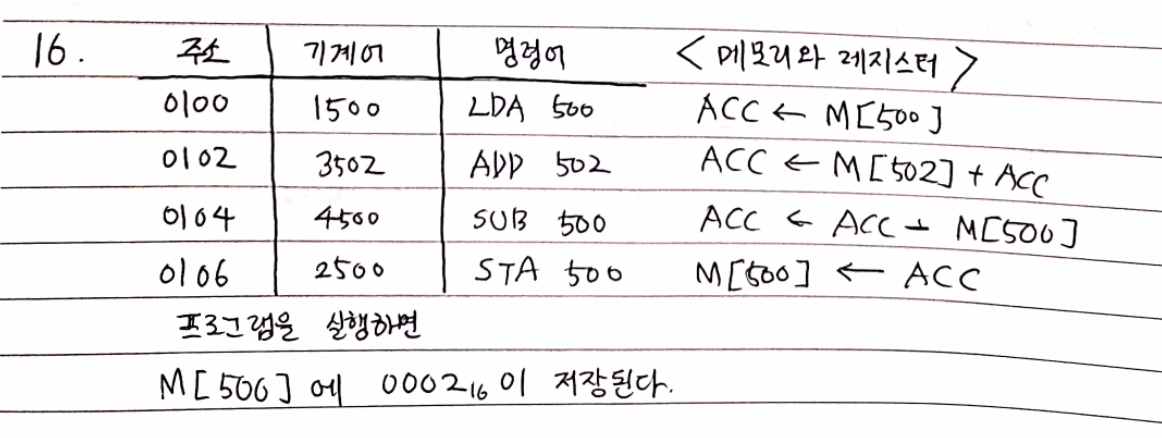 16. 주소 기계어 명령어 < 메모리와 레지스터 >
0100 1500 LDA 500 ACC ← M[500]
0102 3502 ADD 502 ACC ← M[502] + ACC
0104 4500 SUB 500 ACC ← ACC - M[500]
0106 2500 STA 500 M[500] ← ACC
프로그램을 실행하면
M[500] 에 0002₁₆이 저장된다.